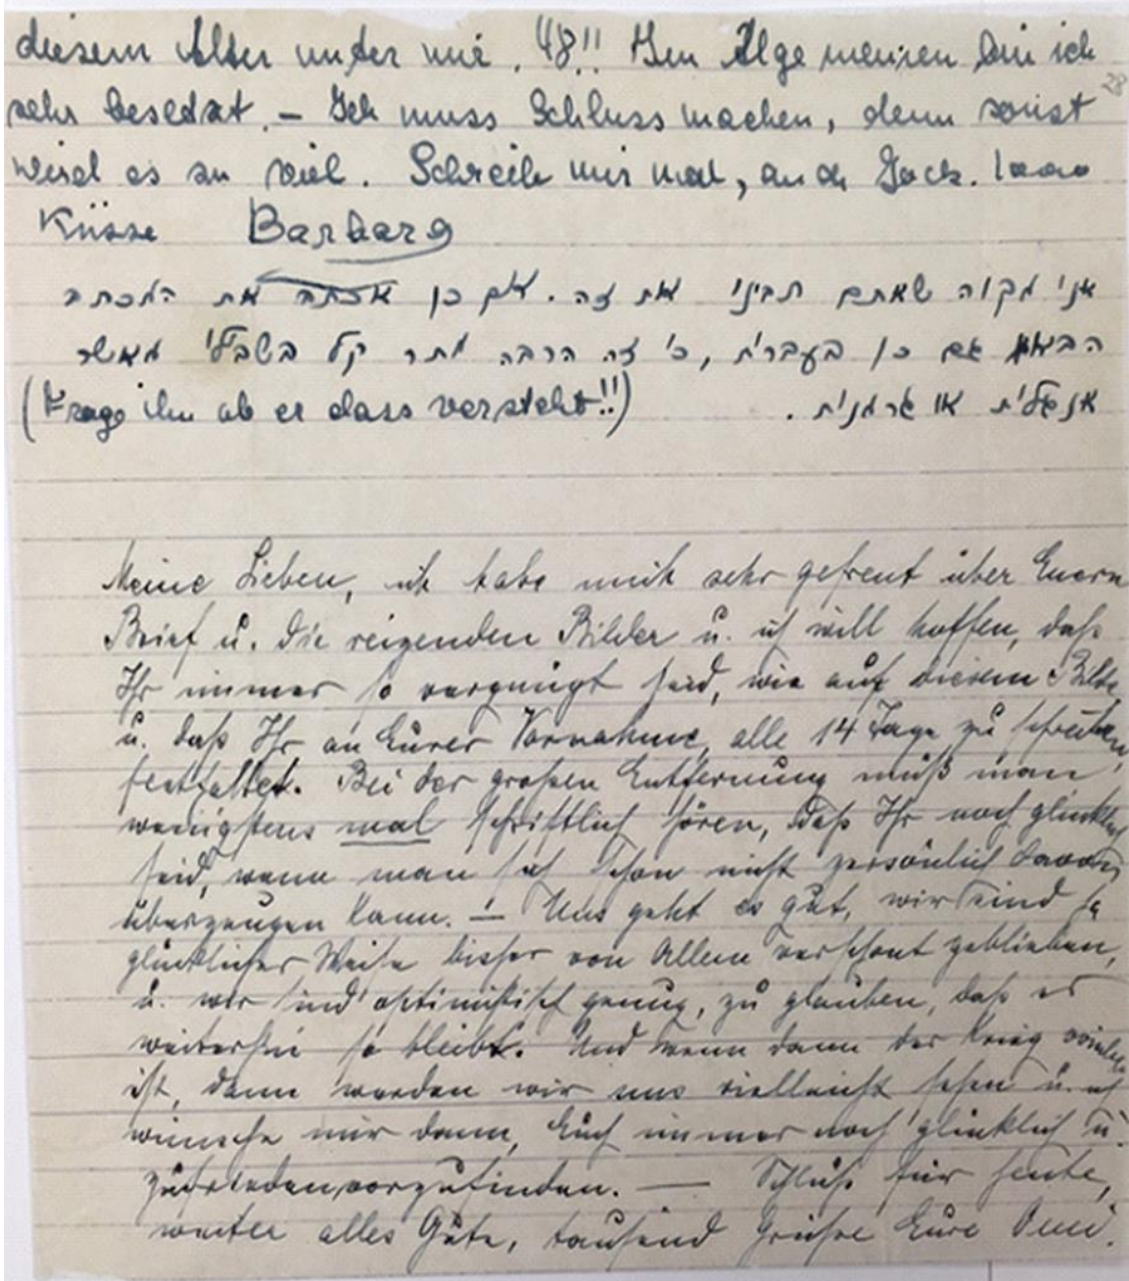 diesem Alter unter mir. 48!! Im Algemeinen bin ich
28
sehr besetzt. – Ich muss Schluss machen, denn sonst
wird es zu viel. Schreib mir mal, auch Jack. 1000
Küsse Barbara
אני מקוה שאתם תבינו את זה. אם כן אכתב את המכתב
הבא גם כן בעברית, כי זה הרבה יותר קל בשבילי מאשר
אנגלית או גרמנית.
(Frage ihn ob er dass versteht!!)
Meine Lieben, ich habe mich sehr gefreut über Euern
Brief u. die reizenden Bilder u. ich will hoffen, daß
Ihr immer so vergnügt seid, wie auf diesem Bilde
u. daß Ihr an Eurer Vornahme, alle 14 Tage zu schreiben,
festhaltet. Bei der großen Entfernung muß man
wenigstens mal schriftlich hören, daß Ihr noch glücklich
seid, wenn man sich schon nicht persönlich davon
überzeugen kann. – Uns geht es gut, wir sind ja
glücklicher Weise bisher von Allem verschont geblieben,
u. wir sind optimistisch genug, zu glauben, daß es
weiterhin so bleibt. Und wenn dann der Krieg vorüber
ist, dann werden wir uns vielleicht sehen u. ich
wünsche mir dann, Euch immer noch glücklich u.
zufrieden vorzufinden. — Schluß für heute,
weiter alles Gute, tausend Grüße Eure Omi.